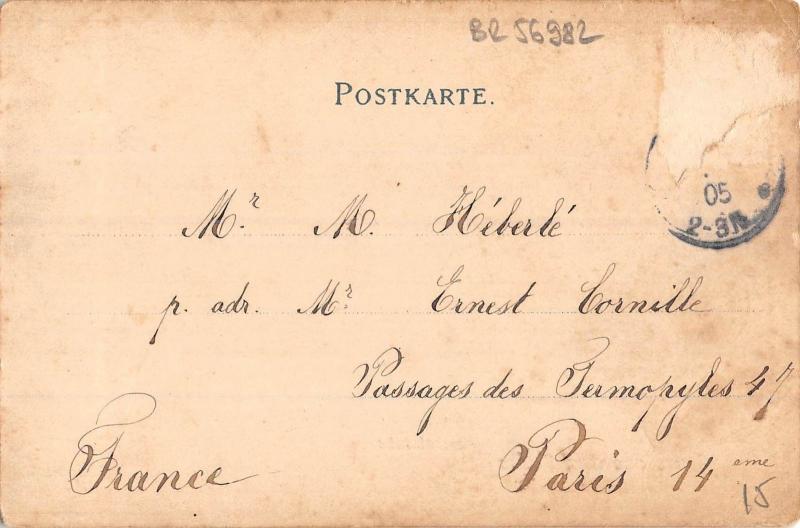 BR 56982
POSTKARTE.
05
2-3N
Mr. M. Héberlé
p. adr. Mr. Ernest Cornille
Passages des Termopyles 47
France Paris 14 eme
15